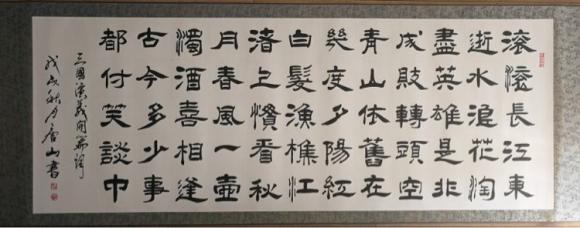 滚滚長江東
逝水浪花淘
盡英雄是非
成敗轉頭空
青山依舊在
幾度夕陽紅
白髮漁樵江
渚上慣看秋
月春風一壺
濁酒喜相逢
古今多少事
都付笑談中
三國演義開篇詞
戊戌秋月 山書